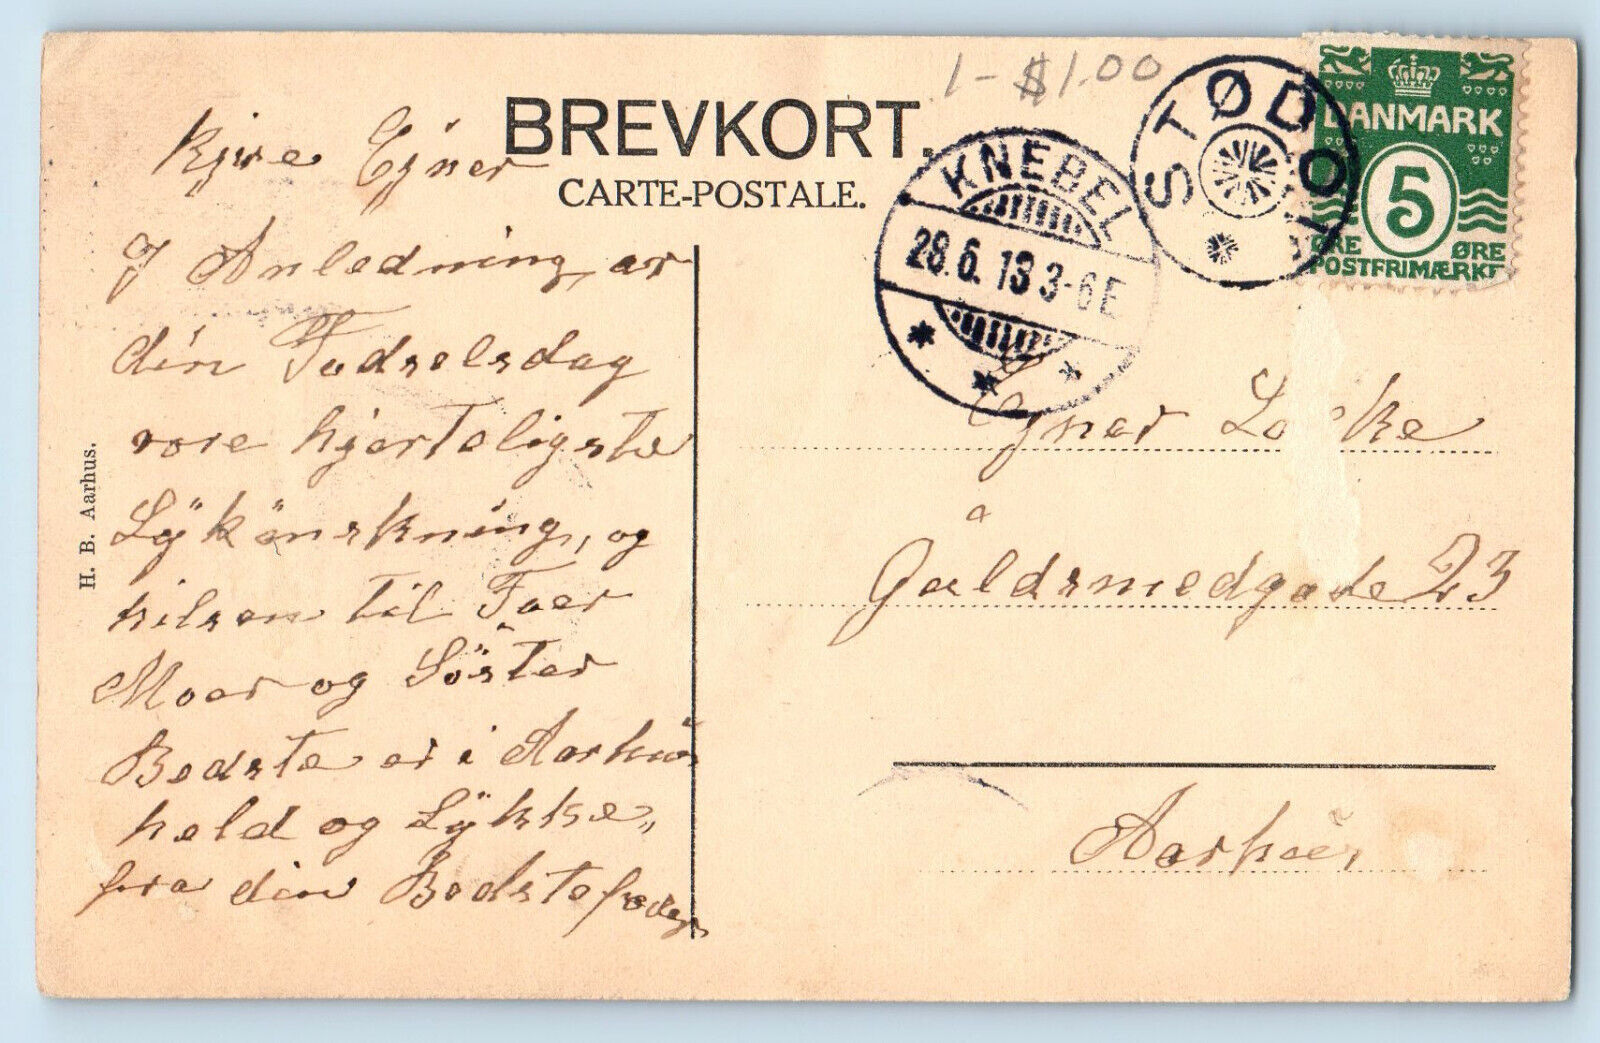 1 - $1.00
BREVKORT.
CARTE-POSTALE.
STØDOV
KNEBEL
28.6.13 3-6E
DANMARK
5
ØRE ØRE
POSTFRIMÆRKE
Kjære Ejner
I Anledning ar
din Fødselsdag
vore hjerteligste
Lÿkönskning, og
hilsen til Faer
Moer og Söster
Bedste er i Aarhus
held og Lÿkke,,
fra din Bedstefader
H. B. Aarhus.
Ejner Løkke
Guldsmedgade 23
Aarhus